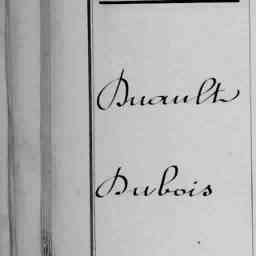 Duault
Dubois